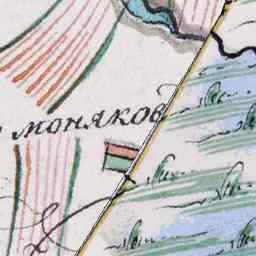 моняковъ